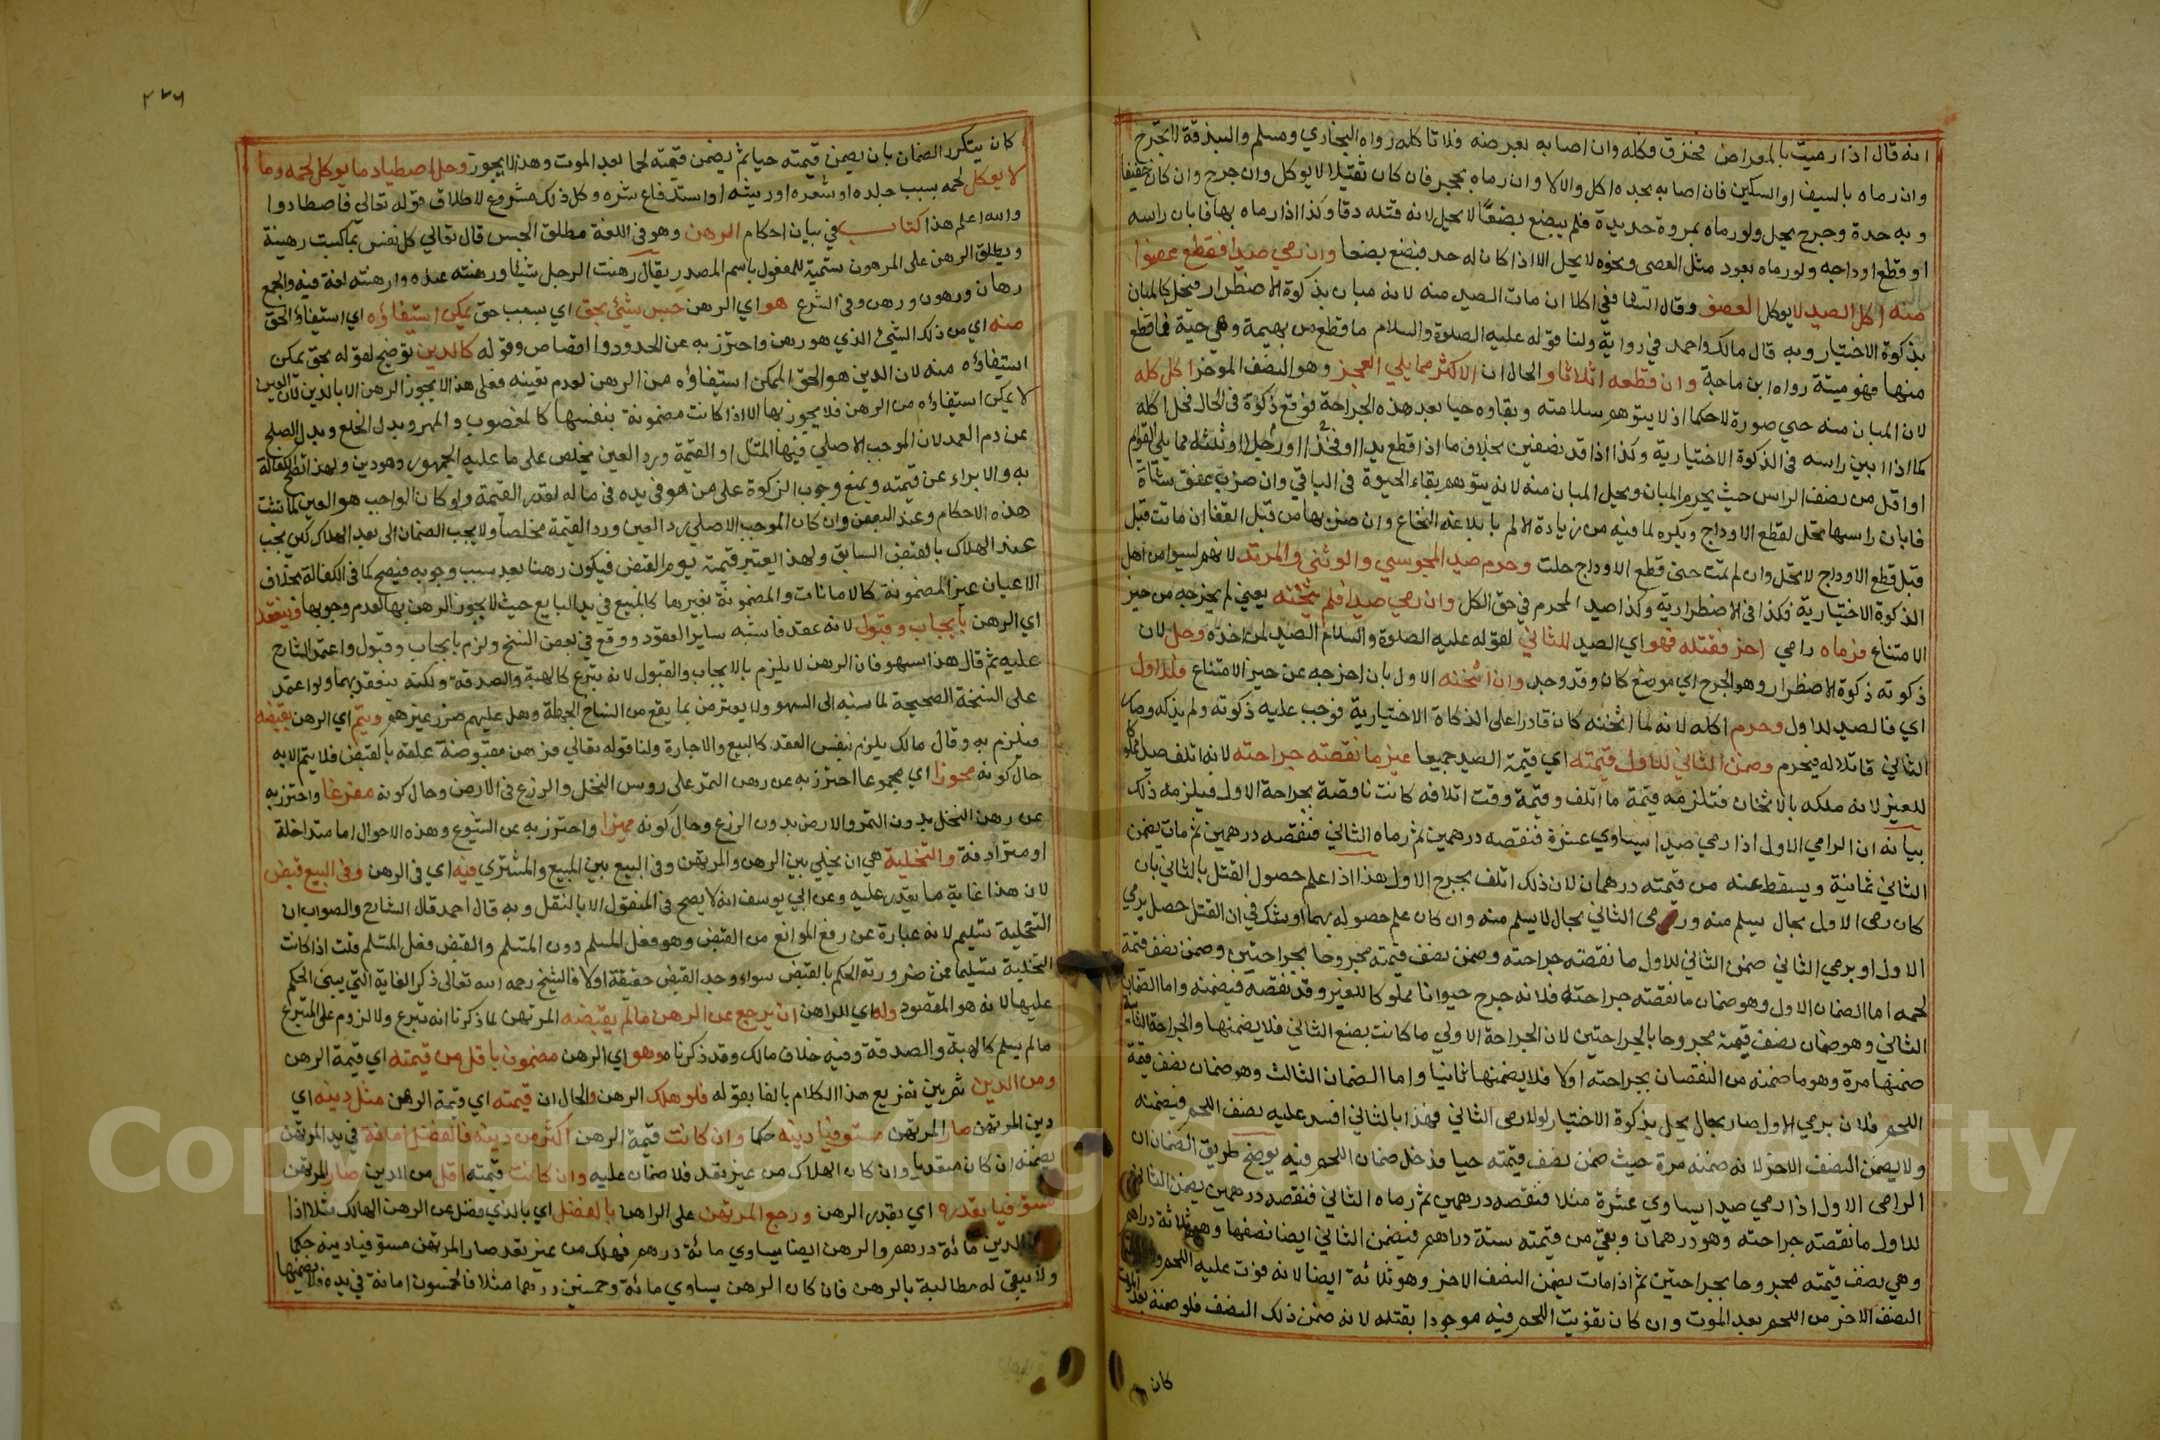 انه قال اذا رميت بالمعراض فخزق فكله وان اصابه بعرضه فلا تاكله رواه البخاري ومسلم والبندقة لا تجرح
وان رماه بالسيف او السكين فان اصابه بحده اكل والا لا وان رماه بحجر فان كان ثقيلا لا يوكل وان جرح وان كان خفيفا
وبه حدة وجرح يحل ولو رماه بمروة حديدة فلم يبضع بضعا لا يحل لانه قتله دقا وكذا اذا رماه بها فابان راسه
او قطع اوداجه ولو رماه بعود مثل العصى ونحوه لا يحل الا اذا كان له حد فبضع بضعا وان رمي صيدا فقطع عضوا
منه اكل الصيد لا يوكل العضو وقال الشافعي اكلا ان مات الصيد منه لانه مبان بذكوة الاضطرار فيحل كالمبان
بذكوة الاختيار وبه قال مالك واحمد في رواية ولنا قوله عليه الصلوة والسلام ما قطع من بهيمة وهي حية فما قطع
منها فهو ميتة رواه ابن ماجة وان قطعه اثلاثا و الحال ان الاكثر مما يلي العجز وهو النصف الموخر اكل كله
لان المبان منه حي صورة لا حكما اذ لا يتوهم سلامته وبقاوه حيا بعد هذه الجراحة فوقع ذكوة في الحال فحل اكله
كما اذا ابين راسه في الذكوة الاختيارية وكذا اذا قد نصفين بخلاف ما اذا قطع يدا او فخذا او رجلا او ثلثه مما يلي القوائم
او اقل من نصف الراس حيث يحرم المبان ويحل المبان منه لانه يتوهم بقاء الحيوة في الباقي وان ضرب عنق شاة
فابان راسها تحل لقطع الاوداج ويكره لما فيه من زيادة الالم بابلاغه النخاع وان ضربها من قبل القفا ان ماتت قبل
قبل قطع الاوداج لا تحل وان لم تمت حتى قطع الاوداج حلت وحرم صيد المجوسي والوثني والمرتد لانهم ليسوا من اهل
الذكوة الاختيارية فكذا في الاضطرارية وكذا صيد المحرم في حق الكل وان رمي صيدا فلم يثخنه يعني لم يخرجه من حيز
الامتناع فرماه رامي اخر فقتله فهو اي الصيد للثاني لقوله عليه الصلوة والسلام الصيد لمن اخذه وحل لان
ذكوته ذكوة الاضطرار وهو الجرح اي موضع كان وقد وجد وان اثخنه الاول بان اخرجه عن حيز الامتناع فللاول
اي فالصيد للاول وحرم اكله لانه لما اثخنه كان قادرا على الذكاة الاختيارية فوجب عليه ذكوته ولم يذكه وصار
الثاني قاتلا له فيحرم وضمن الثاني للاول قيمته اي قيمة الصيد جميعا غير ما نقصته جراحته لانه اتلف صيدا مملوكا
للغير لانه ملكه بالاثخان فتلزمه قيمة ما اتلف وقيمة وقت اتلافه كانت ناقصة بجراحة الاول فيلزمه ذلك
بيانه ان الرامي الاول اذا رمي صيدا يساوي عشرة فنقصه درهمين ثم رماه الثاني فنقصه درهمين ثم مات يضمن
الثاني ثمانية ويسقط عنه من قيمته درهمان لان ذلك اتلف بجرح الاول هذا اذا علم حصول القتل بالثاني بان
كان رمى الاول بحال يسلم منه ورمى الثاني بحال لا يسلم منه وان كان علم حصوله بهما او شك في ان القتل حصل برمي
الاول او برمي الثاني ضمن الثاني للاول ما نقصته جراحته وضمن نصف قيمته مجروحا بجراحتين وضمن نصف قيمة
لحمه اما الضمان الاول وهو ضمان ما نقصته جراحته فلانه جرح حيوانا مملوكا للغير وقد نقصه فيضمنه واما الضمان
الثاني وهو ضمان نصف قيمة مجروحا بالجراحتين لان الجراحة الاولي ما كانت بصنع الثاني فلا يضمنها والجراحة الثانية
ضمنها مرة وهو ما ضمنه من النقصان بجراحته اولا فلا يضمنها ثانيا واما الضمان الثالث وهو ضمان نصف قيمة
اللحم فلان برمي الاول صار بحال يحل بذكوة الاختيار لولا رمى الثاني فهذا بالثاني افسد عليه نصف اللحم فيضمنه
ولا يضمن النصف الاخر لانه ضمنه مرة حيث ضمن نصف قيمته حيا فدخل ضمان اللحم فيه يوضح طريق الضمان ان
الرامى الاول اذا رمي صيدا يساوي عشرة مثلا فنقصه درهمين ثم رماه الثاني فنقصه درهمين يضمن الثاني
للاول ما نقصته جراحته وهو درهمان وبقى من قيمته ستة دراهم فيضمن الثاني ايضا نصفها وهو ثلاثة دراهم
وهي نصف قيمته مجروحا بجراحتين ثم اذا مات يضمن النصف الاخر وهو ثلاثة ايضا لانه فوت عليه اللحم
النصف الاخر من اللحم بعد الموت وان كان تفويت اللحم فيه موجودا بقتله لانه ضمن ذلك النصف فلو ضمنه بعد
كان
٢٧٦
كان يتكرر الضمان بان يضمن قيمته حيا ثم يضمن قيمته لحما بعد الموت وهذا لا يجوز وحل اصطياد ما يوكل لحمه وما
لا يوكل لحمه بسبب جلده او شعره او ريشه او استدفاع شره وكل ذلك مشروع لاطلاق قوله تعالى فاصطادوا
والله اعلم هذا كتاب في بيان احكام الرهن وهو في اللغة مطلق الحبس قال تعالي كل نفس بما كسبت رهينة
ويطلق الرهن على المرهون تسمية للمفعول باسم المصدر يقال رهنت الرجل شيئا ورهنته عنده وارهنته لغة فيه والجمع
رهان ورهون ورهن وفي الشرع هو اي الرهن حبس شيئ بحق اي بسبب حق يمكن استيفاؤه اي استيفاؤ الحق
منه اي من ذلك الشيئ الذي هو رهن واحترز به عن الحدود والقصاص وقوله كالدين توضيح لقوله بحق يمكن
استيفاؤه منه لان الدين هو الحق الممكن استيفاؤه من الرهن لعدم تعينه فعلى هذا لا يجوز الرهن الا بالدين لان العين
لا يمكن استيفاؤه من الرهن فلا يجوز بها الا اذا كانت مضمونة بنفسها كالمغصوب والمهر وبدل الخلع وبدل الصلح
عن دم العمد لان الموجب الاصلي فيها المثل او القيمة ورد العين مخلص على ما عليه الجمهور وهو دين ولهذا تصح الكفالة
به والابراء عن قيمته ويمنع وجوب الزكوة على من هو في يده في ماله بقدر القيمة ولو كان الواجب هو العين لما ثبتت
هذه الاحكام وعند البعض وان كان الموجب الاصلي رد العين ورد القيمة مخلصا ولا يجب الضمان الى بعد الهلاك لكن يجب
عند الهلاك بالقبض السابق ولهذا تعتبر قيمته يوم القبض فيكون رهنا بعد سبب وجوبه فيصح كما في الكفالة بخلاف
الاعيان غير المضمونة كالامانات والمضمونة بغيرها كالمبيع في يد البايع حيث لا يجوز الرهن بها لعدم وجوبها وينعقد
اي الرهن بايجاب وقبول لانه عقد فاشبه ساير العقود ووقع في بعض النسخ ولزم بايجاب وقبول واعتمد الشارح
عليه ثم قال هذا سهو فان الرهن لا يلزم بالايجاب والقبول لانه تبرع كالهبة والصدقة ولكنه ينعقد بهما ولو اعتمد
على النسخة الصحيحة لما نسبه الى السهو ولا يعترض بما يقع من النساخ الخبطة وهل عليهم ضرر غيرهم ويتم اي الرهن بقبضه
فيلزم به وقال مالك يلزم بنفس العقد كالبيع والاجارة ولنا قوله تعالي فرهن مقبوضة علقه بالقبض فلا يتم الا به
حال كونه محوزا اي مجموعا احترز به عن رهن الثمر على روس النخل والزرع في الارض وحال كونه مفرغا واحترز به
عن رهن النخل بدون الثمر والارض بدون الزرع وحال كونه مميزا واحترز به عن الشيوع وهذه الاحوال اما متداخلة
او مترادفة والتخلية هي ان يخلي بين الرهن والمرتهن وفي البيع بين المبيع والمشتري فيه اي في الرهن وفي البيع قبض
لان هذا غاية ما يقدر عليه وعن ابي يوسف انه لا يصح في المنقول الا بالنقل وبه قال احمد قال الشارح والصواب ان
التخلية تسليم لانه عبارة عن رفع الموانع من القبض وهو فعل المسلم دون المتسلم والقبض فعل المتسلم قلت اذا كانت
التخلية تسليما فمن ضرورته الحكم بالقبض سواء وجد القبض حقيقة اولا فالشيخ رحمه الله تعالى ذكر الغاية التي يبنى الحكم
عليها لانه هو المقصود وله اي للراهن ان يرجع عن الرهن ما لم يقبضه المرتهن لما ذكرنا انه تبرع ولا لزوم على المتبرع
ما لم يسلم كالهبة والصدقة وفيه خلاف مالك وقد ذكرناه وهو اي الرهن مضمون باقل من قيمته اي قيمة الرهن
ومن الدين ثم بين تفريع هذا الكلام بالفا بقوله فلو هلك الرهن والحال ان قيمته اي قيمة الرهن مثل دينه اي
دين المرتهن صار المرتهن مستوفيا دينه حكما وان كانت قيمة الرهن اكثر من دينه فالفضل امانة في يد المرتهن
يضمنه ان كان متعديا وان كان الهلاك من غير تعد فلا ضمان عليه وان كانت قيمته اقل من الدين صار المرتهن
مستوفيا بقدره اي بقدر الرهن ورجع المرتهن على الراهن بالفضل اي بالذي فضل من الرهن الهالك مثلا اذا
الدين مائة درهم والرهن ايضا يساوي مائة درهم فهلك من غير تعد صار المرتهن مستوفيا دينه حكما
ولا يبقى له مطالبة بالرهن فان كان الرهن يساوي مائة وخمسين درهما مثلا فالخمسون امانة في يده فلا يضمنها
Copyright © King Saud University